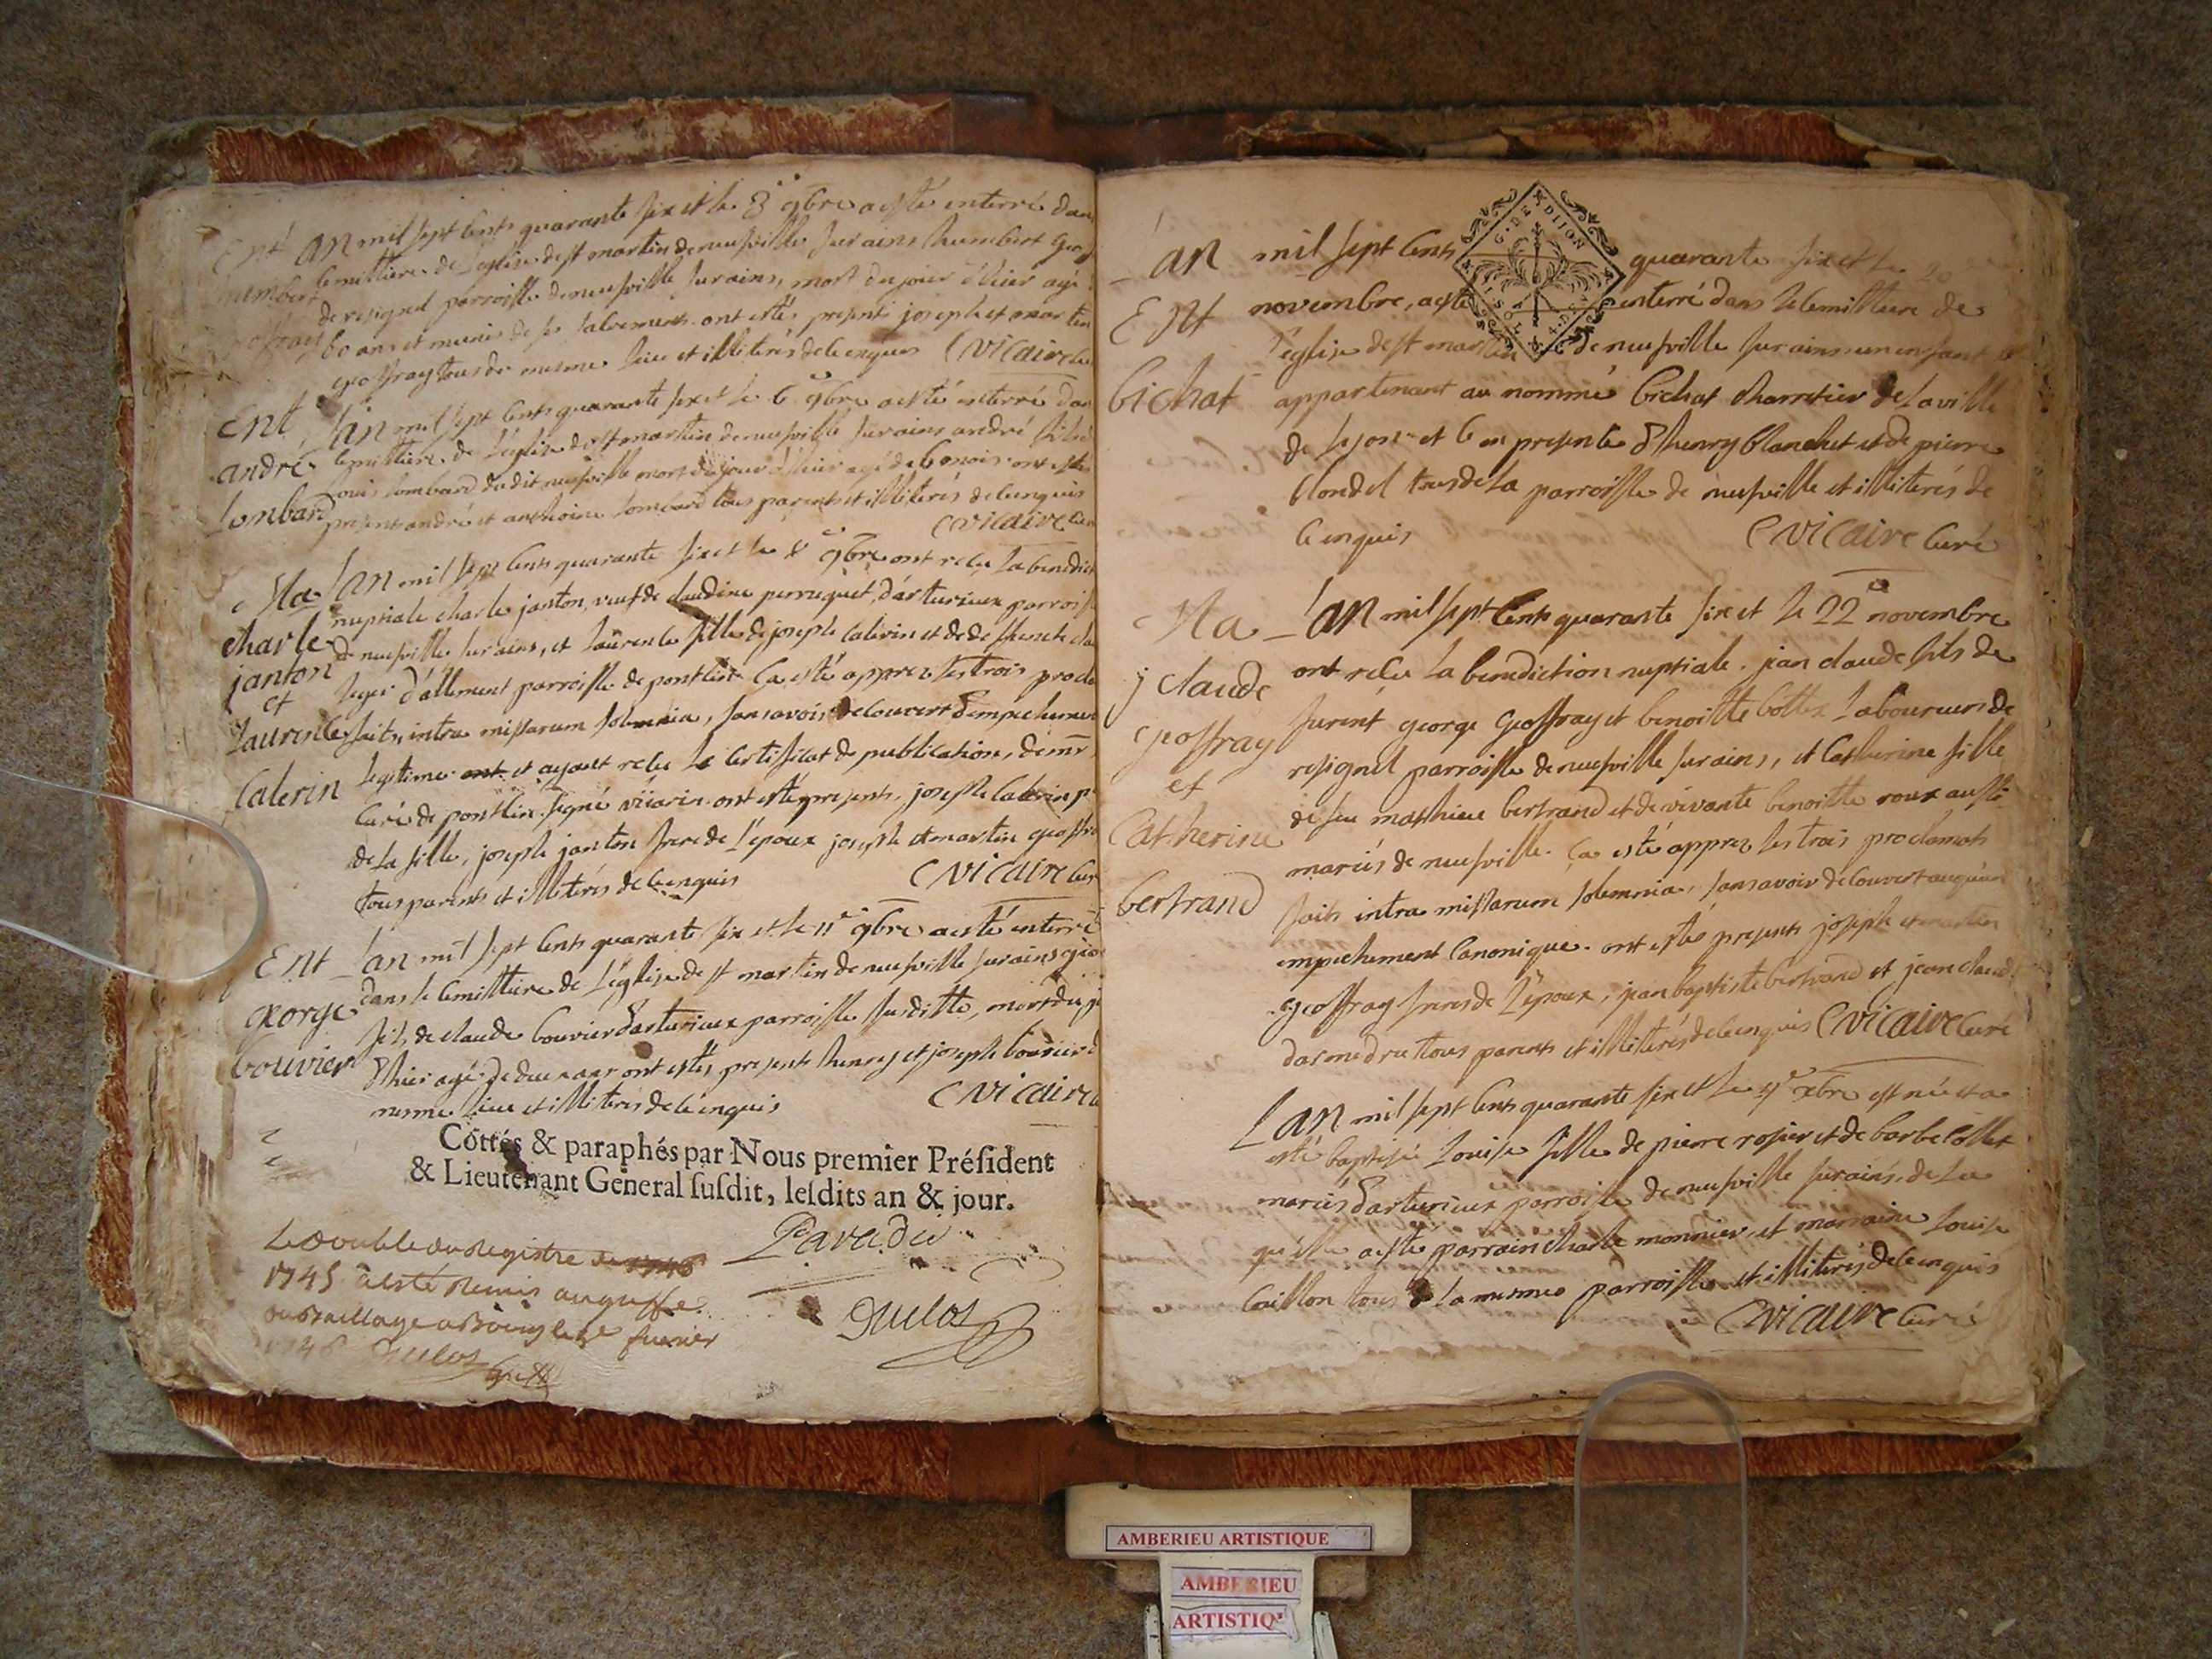 Ent
humbert
geoffray
L'an mil sept cents quarante six et le 3e 9bre a esté enterré dans
le cemittiere de l'eglise de st martin de neufville sur ains humbert geof
de resignel parroisse de neufville sur ains, mort du jour d'hier agé
60 ans et munis de ses sacrements ont estés presents joseph et martin
geoffray tous de mesme lieu et illiterés de ce enquis C vicaire cu
Ent
andre
lombard
L'an mil sept cents quarante six et le 6e 9bre a esté enterré dan
le cemittiere de l'eglise de st martin de neufville sur ains andré fils de
louis lombard dudit neufville mort du jour d'hier agé de 6 mois ont estes
presents andré et anthoine lombard tous parents et illiterés de ce enquis
C vicaire cu
Ma
charle
janton
et
Laurence
Calerin
L'an mil sept cents quarante six et le 8e 9bre ont recu la benedict
nuptiale charle janton, veuf de claudine perruquet, d'arturieux parroiss
de neufville sur ains, et laurence fille de joseph calerin et de deffuncte cla
leger d'allement parroisse de pontcin. Ca esté apprez les trois procla
faits, intra missarum solemnia, sans avoir decouvert d'empechement
legitime ont et ayant recu le certificat de publication, de mr
curé de pontcin signé viiarin. ont esté presents, joseph calerin p
de la fille, joseph janton frere de l'epoux joseph et martin geoffra
tous parents et illiterés de ce enquis C vicaire cur
Ent
george
bouvier
L'an mil sept cents quarante six et le 11e 9bre a esté enterré
dans le cemittiere de l'eglise de st martin de neufville sur ains geo
fils de claude bouvier d'arturieux parroisse susditte, mort du j
d'hier agé de deux ans ont estés presents henry et joseph bouvier d
mesme lieu et illiterés de ce enquis C vicaire c
Cottés & paraphés par Nous premier Président
& Lieutenant General susdit, lesdits an & jour.
Le double du Registre de 1746
1745 a esté Remis au greffe
du Bailliage a Bourg le fevrier
1746 Duclos
Duclos
L'an mil sept cents quarante six et le
G. DE DIJON
Ent
bichat
novembre, a esté enterré dans le cemittiere de
l'eglise de st martin de neufville sur ains un enfant
appartenant au nommé bichat charretier de la ville
de lyon et ce en presente d'henry blanchet et de pierre
clondel tous de la parroisse de neufville et illiterés de
ce enquis C vicaire curé
Ma
j claude
geoffray
et
Catherine
bertrand
L'an mil sept cents quarante six et le 22e novembre
ont recu la benediction nuptiale. jan claude fils de
furent george geoffray et benoitte bottex laboureurs de
resignel parroisse de neufville sur ains, et catherine fille
de feu matthieu bertrand et de vivante benoitte roux aussi
mariés de neufville. Ca esté apprez les trois proclamats
faits intra missarum solemnia, sans avoir decouvert auqu'un
empechement canonique. ont estés presents joseph et martin
geoffray freres de l'epoux, jean baptiste bertrand et jean claude
darmedru tous parents et illiterés de ce enquis C vicaire curé
L'an mil sept cents quarante six et le 4e xbre est née et a
esté baptisée louise fille de pierre rosier et de barbe collet
mariés d'arturieux parroisse de neufville sur ains. de la
qu'elle a esté parrain charle monnier, et marraine louise
caillon tous de la mesme parroisse et illiterés de ce enquis
C vicaire curé
AMBERIEU ARTISTIQUE
AMBERIEU
ARTISTIQ